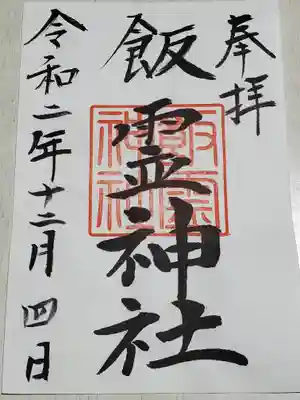 奉拝
飯霊神社
飯霊神社
令和二年十二月四日